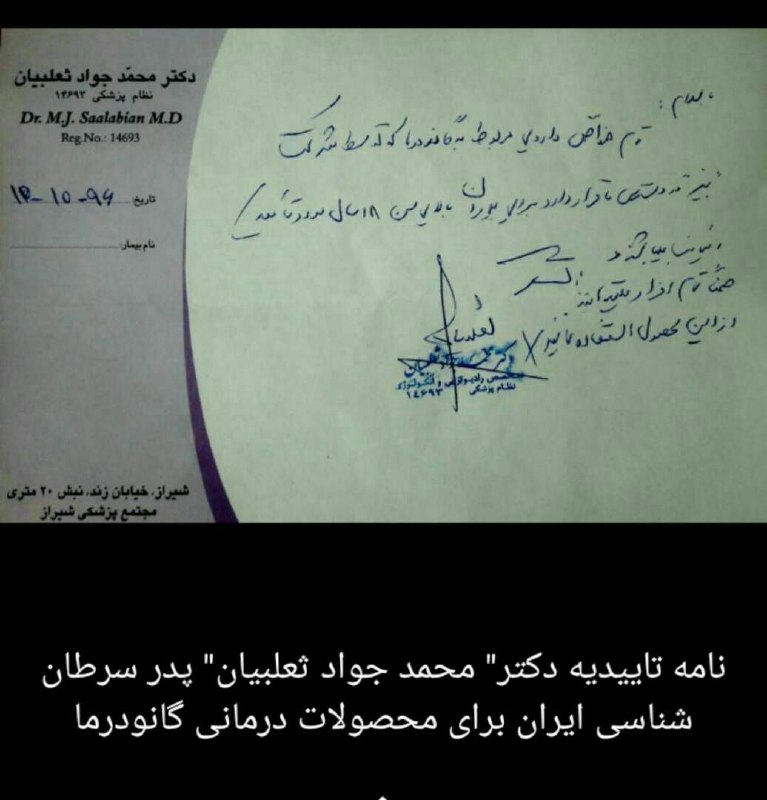 دکتر محمّد جواد ثعلبیان
نظام پزشکی ۱۴۶۹۳
Dr. M.J. Saalabian M.D
Reg.No.: 14693
تاریخ ۹۴-۱۰-۱۲
نام بیمار:
تمام خواص داروی مربوط به گانودرما که توسط شرکت
قرار دارد برای بیماران بالای سن ۱۸ سال مورد تأیید
ضمناً تمام افراد
از این محصول استفاده نمایند
ثعلبیان
نظام پزشکی
۱۴۶۹۳
شیراز، خیابان زند، نبش ۲۰ متری
مجتمع پزشکی شیراز
نامه تاییدیه دکتر" محمد جواد ثعلبیان" پدر سرطان
شناسی ایران برای محصولات درمانی گانودرما